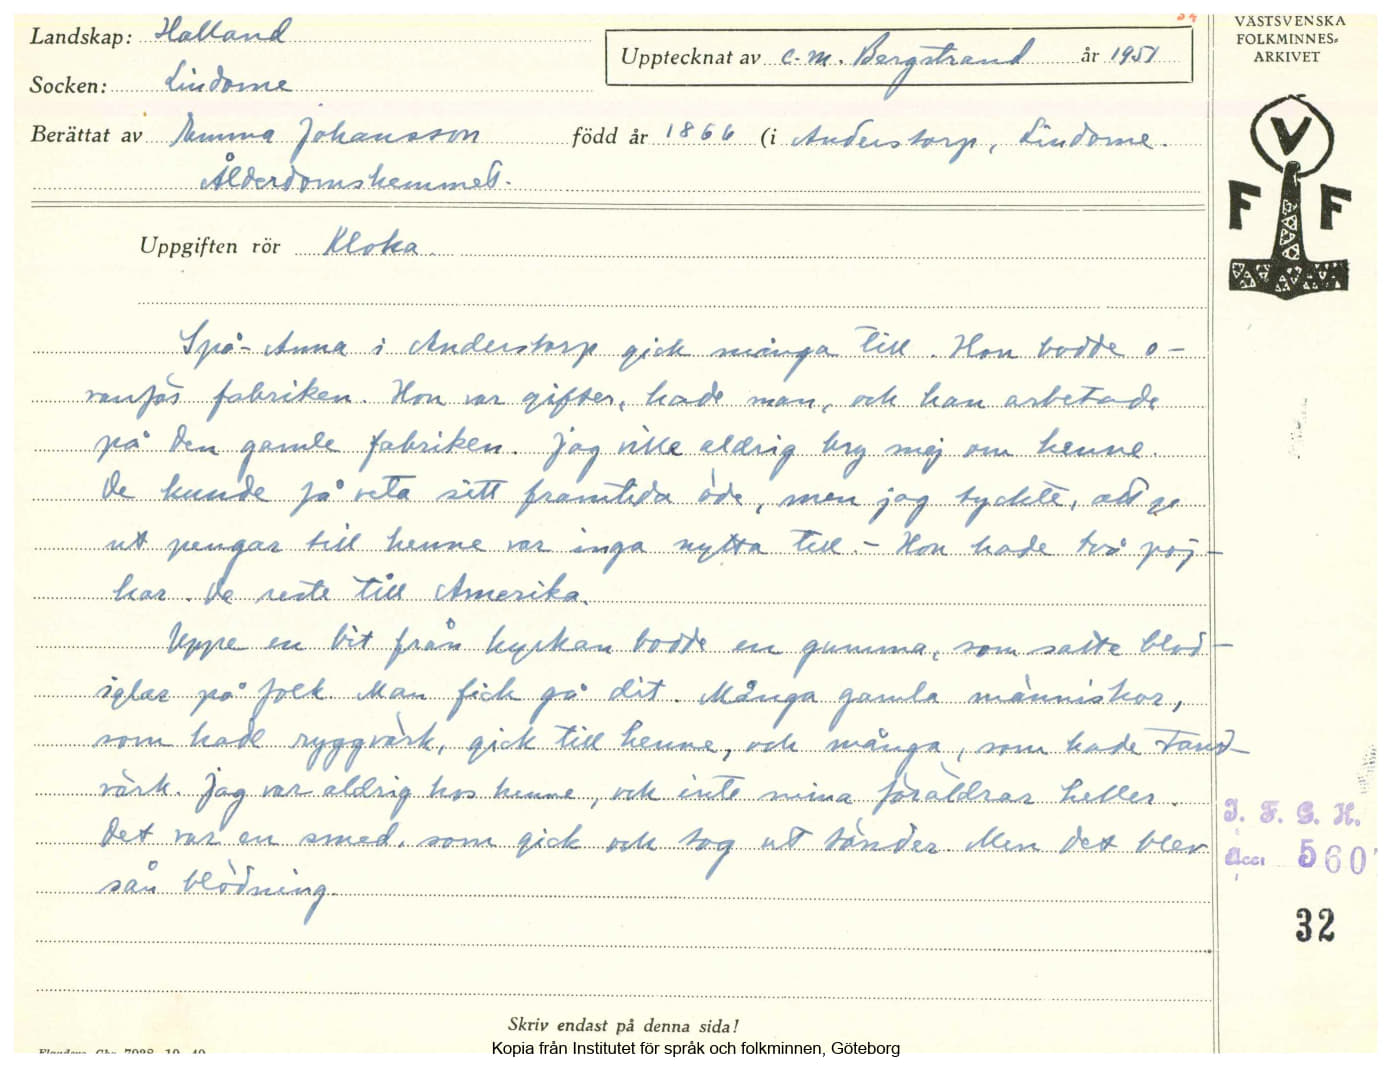 Landskap: Halland
Upptecknat av C. M. Bergstrand år 1951
VÄSTSVENSKA
FOLKMINNES-
ARKIVET
Socken: Lindome
Berättat av Emma Johansson född år 1866 (i Anderstorp, Lindome.
Ålderdomshemmet.
V
F F
Uppgiften rör Kloka.
Spå-Anna i Anderstorp gick många till. Hon bodde o-
vanför fabriken. Hon var gifter, hade man, och han arbetade
på den gamle fabriken. Jag ville aldrig bry mej om henne.
De kunde få veta sitt framtida öde, men jag tyckte, att ge
ut pengar till henne var inga nytta till. – Hon hade två poj-
kar. De reste till Amerika.
Uppe en bit från kyrkan bodde en gumma, som satte blod-
iglar på folk. Man fick gå dit. Många gamla människor,
som hade ryggvärk, gick till henne, och många, som hade tand-
värk. Jag var aldrig hos henne, och inte mina föräldrar heller.
Det var en smed, som gick och tog ut tänder. Men det blev
sån blödning.
I. F. G. H.
Acc: 5607
32
Skriv endast på denna sida!
Kopia från Institutet för språk och folkminnen, Göteborg